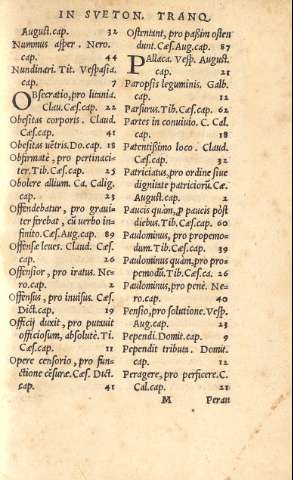 IN SVETON. TRANQ.
August.cap. 32
Nummus asper. Nero.
cap. 44
Nundinari. Tit. Vespasia.
cap. 7
OBsecratio, pro litania.
Clau.Cæs.cap. 22
Obesitas corporis. Claud.
Cæs.cap. 41
Obesitas uẽtris.Do.cap. 18
Obfirmatè, pro pertinaci-
ter.Tib.Cæs.cap. 25
Obolere allium. Ca. Calig.
cap. 23
Offendebatur, pro graui-
ter ferebat, cũ uerbo in-
finito.Cæs.Aug.cap. 89
Offensæ leues. Claud. Cæs.
cap. 26
Offensior, pro iratus. Ne-
ro.cap. 2
Offensus, pro inuisus. Cæs.
Dict.cap. 19
Officij duxit, pro putauit
officiosum, absolutè. Ti.
Cæs.cap. 11
Opere censorio, pro fun-
ctione cẽsuræ.Cæs. Dict.
cap. 41
Ostentant, pro passim osten
dunt.Cæs.Aug.cap. 87
PAllaca. Vesp. August.
cap. 21
Paropsis leguminis. Galb.
cap. 12
Parsurus.Tib.Cæs.cap. 62
Partes in conuiuio. C. Cal.
cap. 18
Patentissimo loco. Claud.
Cæs.cap. 32
Patriciatus, pro ordine siue
dignitate patriciorũ.Cæ.
August.cap. 2
Paucis quàm, ꝓ paucis pòst
diebus.Tib.Cæs.cap. 60
Paulominus, pro propemo-
dum.Tib.Cæs.cap. 39
Paulominus quàm, pro pro
pemodũ.Tib.Cæs.ca. 26
Paulominus, pro penè. Ne-
ro.cap. 40
Pensio, pro solutione.Vesp.
Aug.cap. 23
Pependi.Domit.cap. 9
Pependit tributa. Domit.
cap. 12
Peragere, pro perficere.C.
Cal.cap. 21
M Peran